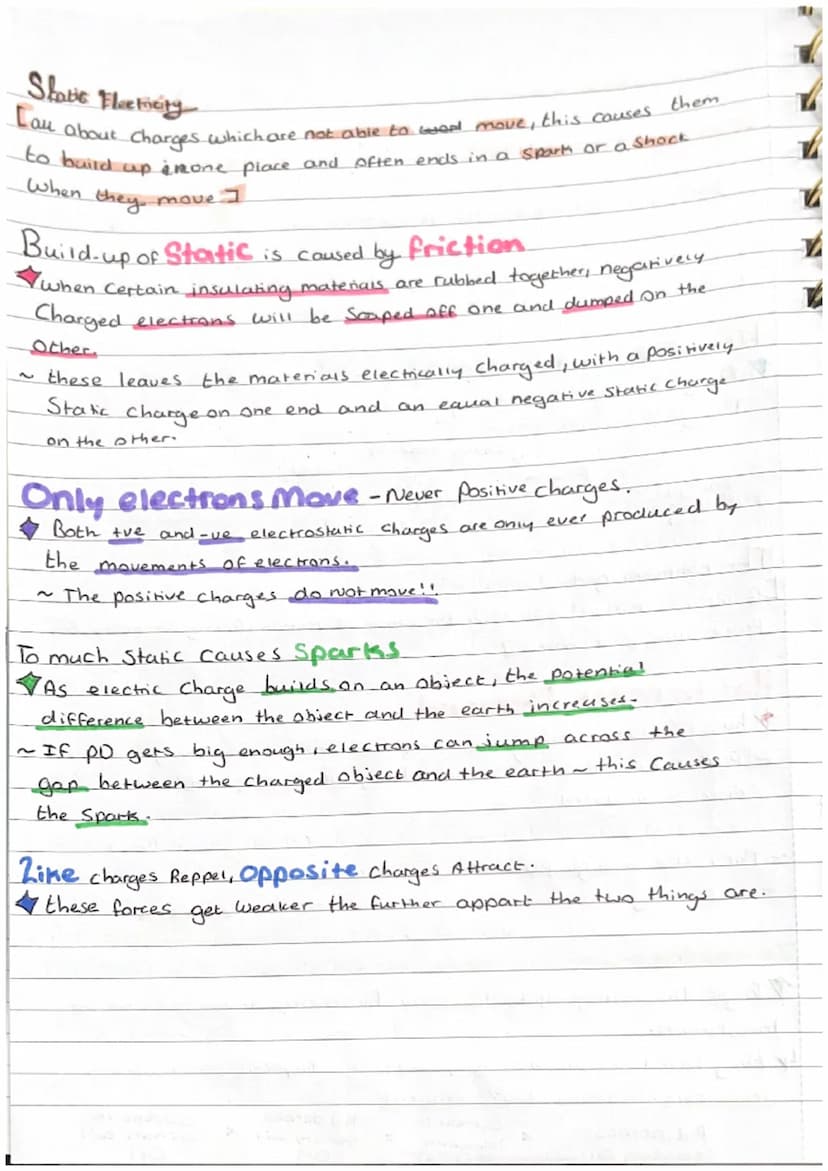 Static Electricity
[all about charges which are not able to move, this causes them
to build up in one place and often ends in a spark or a shock
when they move ]
Build-up of Static is caused by friction
when certain insulating materials are rubbed together, negatively
Charged electrons will be Scaped off one and dumped on the
Other.
~ these leaves the materials electrically charged, with a positively
Static charge on one end and an equal negative static charge
on the other.
Only electrons Move - Never Positive charges.
Both +ve and -ve electrostatic charges are only ever produced by
the movements of electrons.
~ The positive charges do not move!!
To much Static causes Sparks
As electric Charge builds on an object, the potential
difference between the object and the earth increases.
~ If PD gets big enough, electrons can jump across the
gap between the charged object and the earth ~ this Causes
the Spark.
Like charges Reppel, Opposite charges Attract.
these forces get weaker the further appart the two things are.